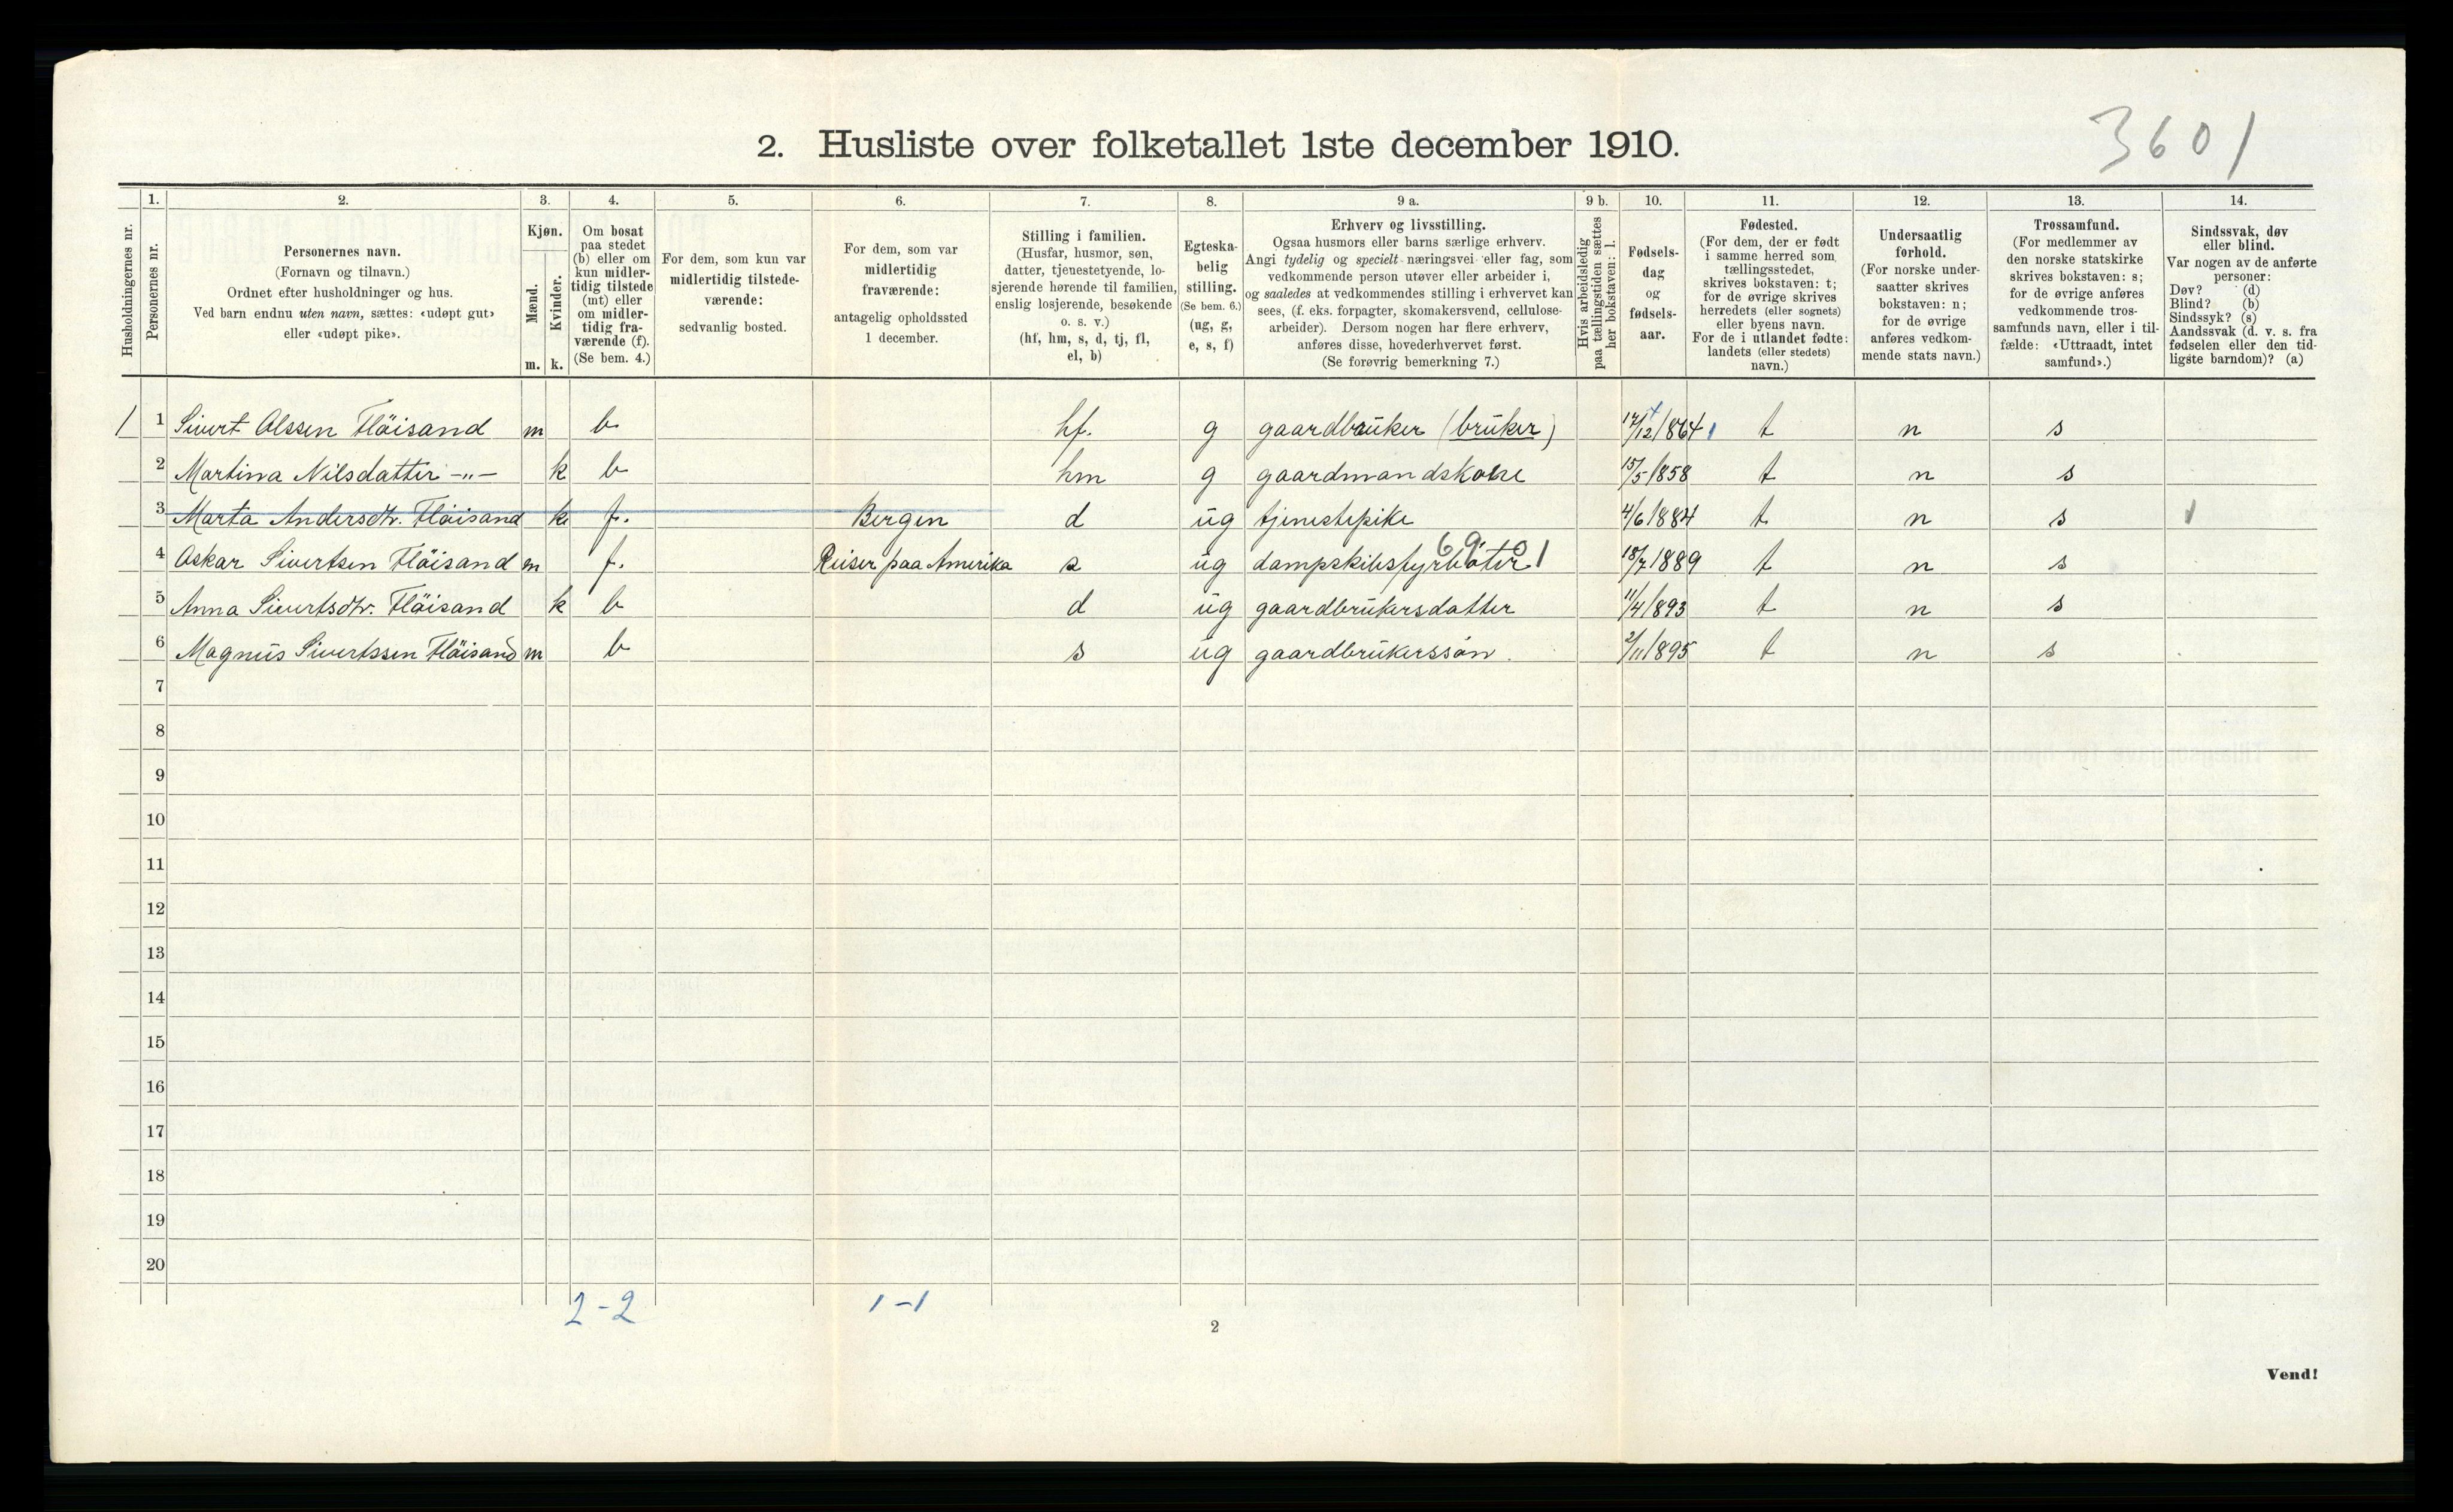 3601
2. Husliste over folketallet 1ste december 1910.
Husholdningernes nr.
1.
Personernes nr.
2.
Personernes navn.
(Fornavn og tilnavn.)
Ordnet efter husholdninger og hus.
Ved barn endnu uten navn, sættes: «udøpt gut»
eller «udøpt pike».
3.
Kjøn.
Mænd.
Kvinder.
m. k.
4.
Om bosat
paa stedet
(b) eller om
kun midler-
tidig tilstede
(mt) eller
om midler-
tidig fra-
værende (f).
(Se bem. 4.)
5.
For dem, som kun var
midlertidig tilstede-
værende:
sedvanlig bosted.
6.
For dem, som var
midlertidig
fraværende:
antagelig opholdssted
1 december.
7.
Stilling i familien.
(Husfar, husmor, søn,
datter, tjenestetyende, lo-
sjerende hørende til familien,
enslig losjerende, besøkende
o. s. v.)
(hf, hm, s, d, tj, fl,
el, b)
8.
Egteska-
belig
stilling.
(Se bem. 6.)
(ug, g,
e, s, f)
9 a.
Erhverv og livsstilling.
Ogsaa husmors eller barns særlige erhverv.
Angi tydelig og specielt næringsvei eller fag, som
vedkommende person utøver eller arbeider i,
og saaledes at vedkommendes stilling i erhvervet kan
sees, (f. eks. forpagter, skomakersvend, cellulose-
arbeider). Dersom nogen har flere erhverv,
anføres disse, hovederhvervet først.
(Se forøvrig bemerkning 7.)
9 b.
Hvis arbeidsledig
paa tællingstiden sættes
her bokstaven: l.
10.
Fødsels-
dag
og
fødsels-
aar.
11.
Fødested.
(For dem, der er født
i samme herred som
tællingsstedet,
skrives bokstaven: t;
for de øvrige skrives
herredets (eller sognets)
eller byens navn.
For de i utlandet fødte:
landets (eller stedets)
navn.)
12.
Undersaatlig
forhold.
(For norske under-
saatter skrives
bokstaven: n;
for de øvrige
anføres vedkom-
mende stats navn.)
13.
Trossamfund.
(For medlemmer av
den norske statskirke
skrives bokstaven: s;
for de øvrige anføres
vedkommende tros-
samfunds navn, eller i til-
fælde: «Uttraadt, intet
samfund».)
14.
Sindssvak, døv
eller blind.
Var nogen av de anførte
personer:
Døv? (d)
Blind? (b)
Sindssyk? (s)
Aandssvak (d. v. s. fra
fødselen eller den tid-
ligste barndom)? (a)
1 1 Sivert Olssen Fläisand m b hf. g gaardbruker (bruker) 14/12 1864 1 t n s
2 Martina Nilsdatter -"- k b hm g gaardmandskone 15/5 1858 t n s
3 Marta Andersdtr. Fläisand k f. Bergen d ug tjenestepike 4/6 1884 t n s 1
4 Oskar Sivertsen Fläisand m f. Reiser paa Amerika s ug dampskibsfyrbøter 6901 18/7 1889 t n s
5 Anna Sivertsdtr. Fläisand k b d ug gaardbrukersdatter 11/4 1893 t n s
6 Magnus Sivertssen Fläisand m b s ug gaardbrukerssøn. 2/11 1895 t n s
7
8
9
10
11
12
13
14
15
16
17
18
19
20
2-2 1-1
2
Vend!